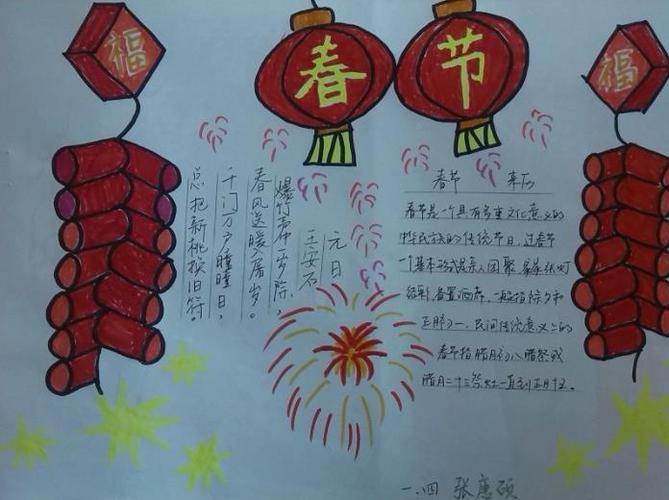 福
春
节
福
元日
王安石
爆竹声中一岁除,
春风送暖入屠岁。
千门万户瞳瞳日,
总把新桃换旧符。
春节 来历
春节是一个具有多重文化意义的
中华民族的传统节日,过春节
一个基本形式是亲人团聚、家家张灯
结彩,备置酒席,一般指除夕和
一、民间传统意义上的
春节指腊月初八腊祭或
腊月二十三祭灶一直到正月十五。
一.四 张唐硕